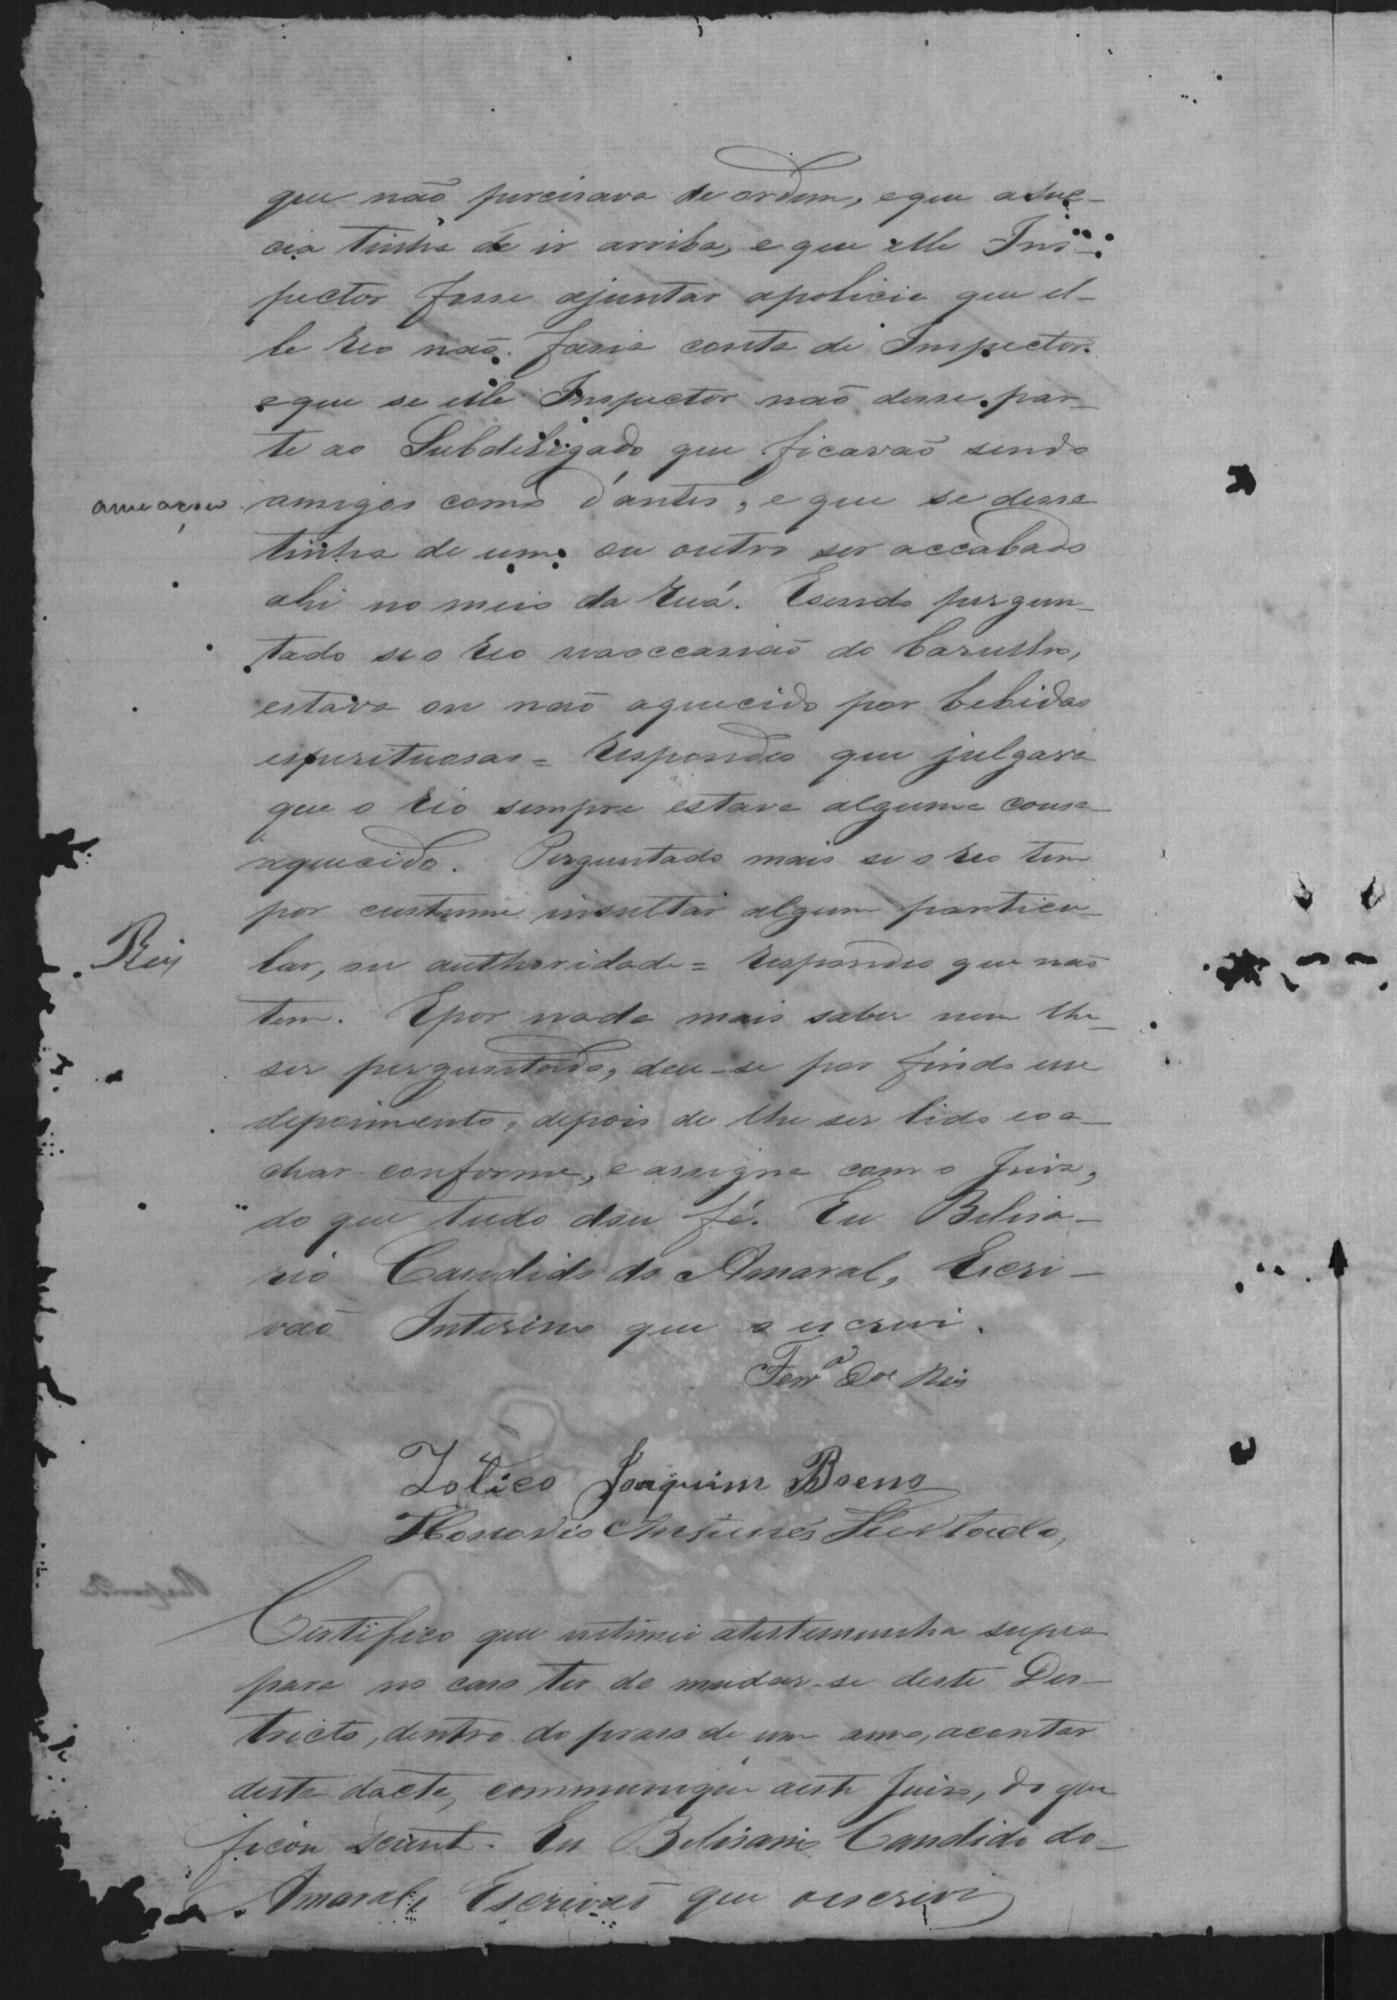 que não percisava de ordem, eque a sue-
cia tinha de ir arriba, e que elle Ins-
pector fosse ajuntar apolicia que el-
le reo não faria conta de Inspector
eque se elle Inspector não desse par-
te ao Subdelegado que ficavão sendo
ameaçou
amigos como d'antes, e que se desse
tinha de um ou outro ser accabado
ahi no meio da ruá. Esendo pergun-
tado se o reo naoccasião do barulho,
estava ou não aquecido por bebidas
espirituosas = Respondeo que julgava
que o reo sempre estava alguma cousa
aquecido. Perguntado mais se o reo tem
por custume insultar algum particu-
Reis
lar, ou authoridade = Respondeo que não
tem. Epor nada mais saber nem lhe
ser perguntado, deu-se por findo este
depoimento, depois de lhe ser lido eo a-
char conforme, e assigna com o Juiz,
do que tudo dou fé. Eu Belisa-
rio Candido do Amaral, Escri-
vão Interino que o escrevi.
Ferrª dos Reis
Joaquim Boeno
Honorio Antunes Furtado,
Certifico que intimei atestemunha supra
para no caso ter de mudar-se deste Des-
tricto, dentro do praso de um anno, acontar
desta dacta, communique aeste Juizo, do que
ficou scient. Eu Belisario Candido do
Amaral, Escrivão que oescrevi